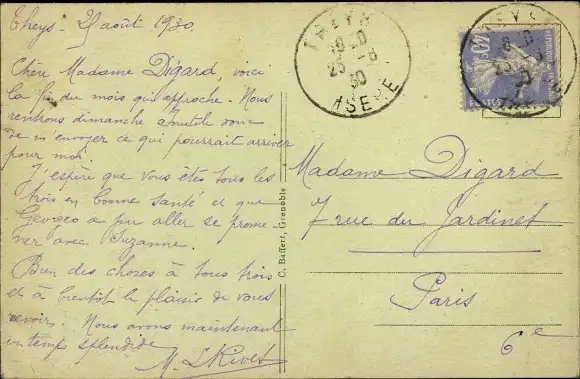 Theys - 25 août 1930.
Chère Madame Digard, voici
la fin du mois qui approche. Nous
rentrons dimanche inutile donc
de m'envoyer ce qui pourrait arriver
pour moi.
J'espère que vous êtes tous les
trois en bonne santé et que
Georges a pu aller se prome
ner avec Suzanne.
Bien des choses à tous trois
et à bientôt le plaisir de vous
revoir. Nous avons maintenant
un temps splendide
C. Baffert, Grenoble
THEYS
25-8
30
ISERE
40c
Madame Digard
7 rue du Jardinet
Paris
6e